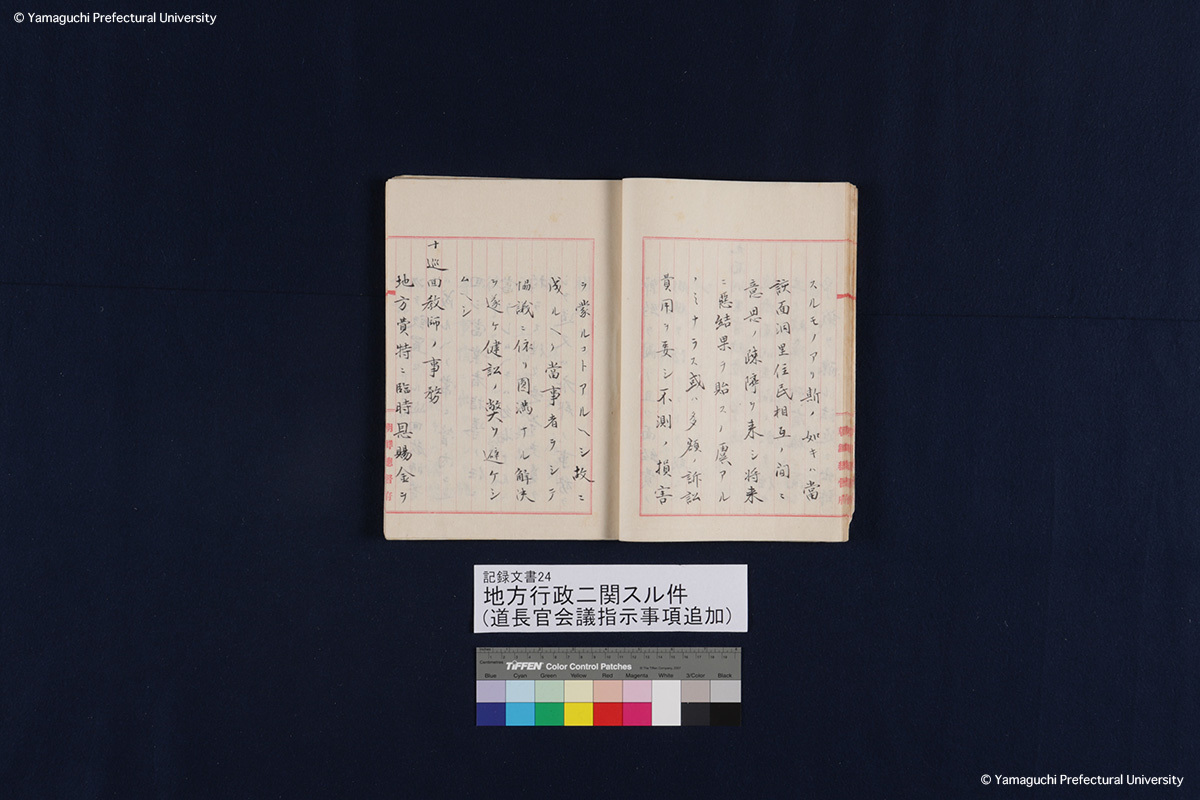 © Yamaguchi Prefectural University
スルモノアリ斯ノ如キハ當
該面洞里住民相互ノ間ニ
意思ノ疎隔ヲ来シ将来
ニ惡結果ヲ貽スノ虞アル
ノミナラス或ハ多額ノ訴訟
費用ヲ要シ不測ノ損害
ヲ蒙ルコトアルヘシ故ニ
成ルヘク當事者ヲシテ
協議ニ依リ圓満ナル解決
ヲ遂ケ健訟ノ弊ヲ避ケシ
ムヘシ
十巡回教師ノ事務
地方費特ニ臨時恩賜金ヲ
記録文書24
地方行政ニ関スル件
(道長官会議指示事項追加)
TIFFEN Color Control Patches
© The Tiffen Company, 2007
Centimetres
Blue Cyan Green Yellow Red Magenta White 3/Color Black
© Yamaguchi Prefectural University